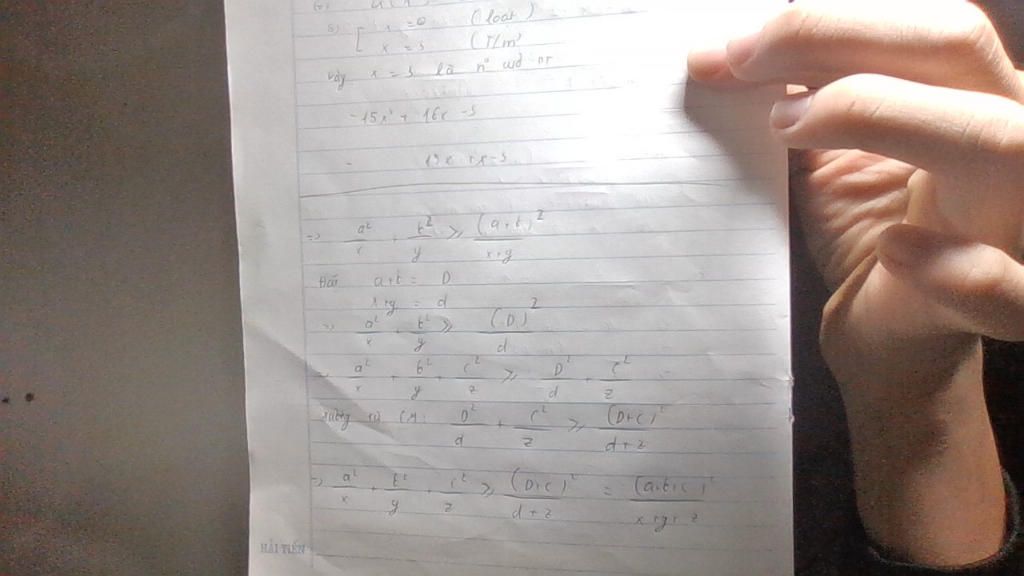 x = 0 (loại)
[ x = 3 (T/m)
Vậy x = 3 là n° của pt
-15x² + 16x - 3
⇒ a²/x + b²/y ≥ (a+b)²/x+y
Đặt a+b = D
x+y = d
⇒ a²/x + b²/y ≥ (D)²/d
⇒ a²/x + b²/y + c²/z ≥ D²/d + c²/z
Tương tự CM: D²/d + c²/z ≥ (D+c)²/d+z
⇒ a²/x + b²/y + c²/z ≥ (D+c)²/d+z = (a+b+c)²/x+y+z
HẢI TIẾN